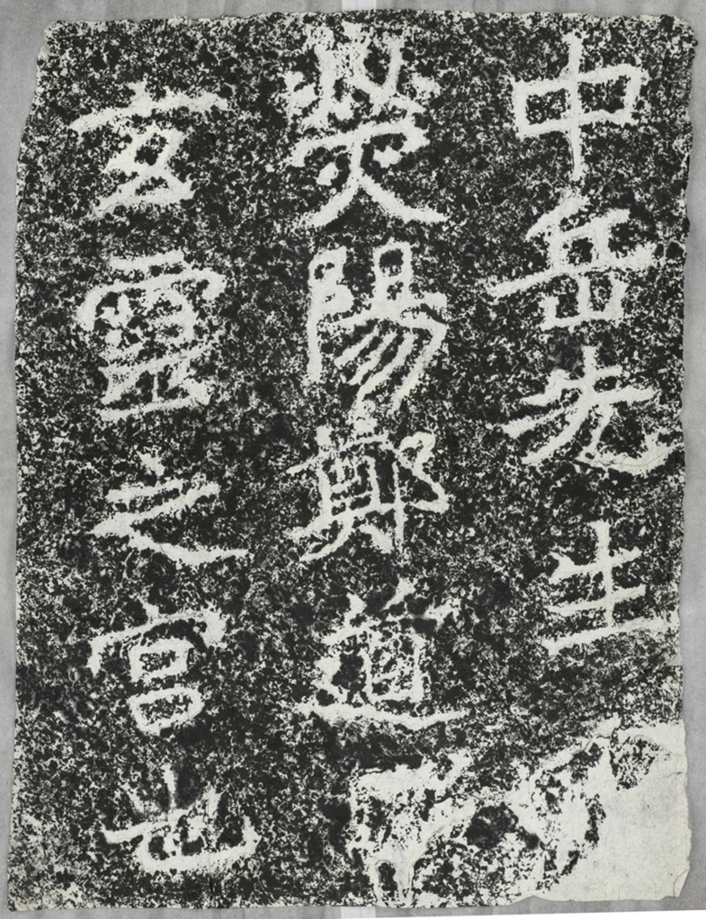 中岳先生
熒陽鄭道
玄靈之宮也